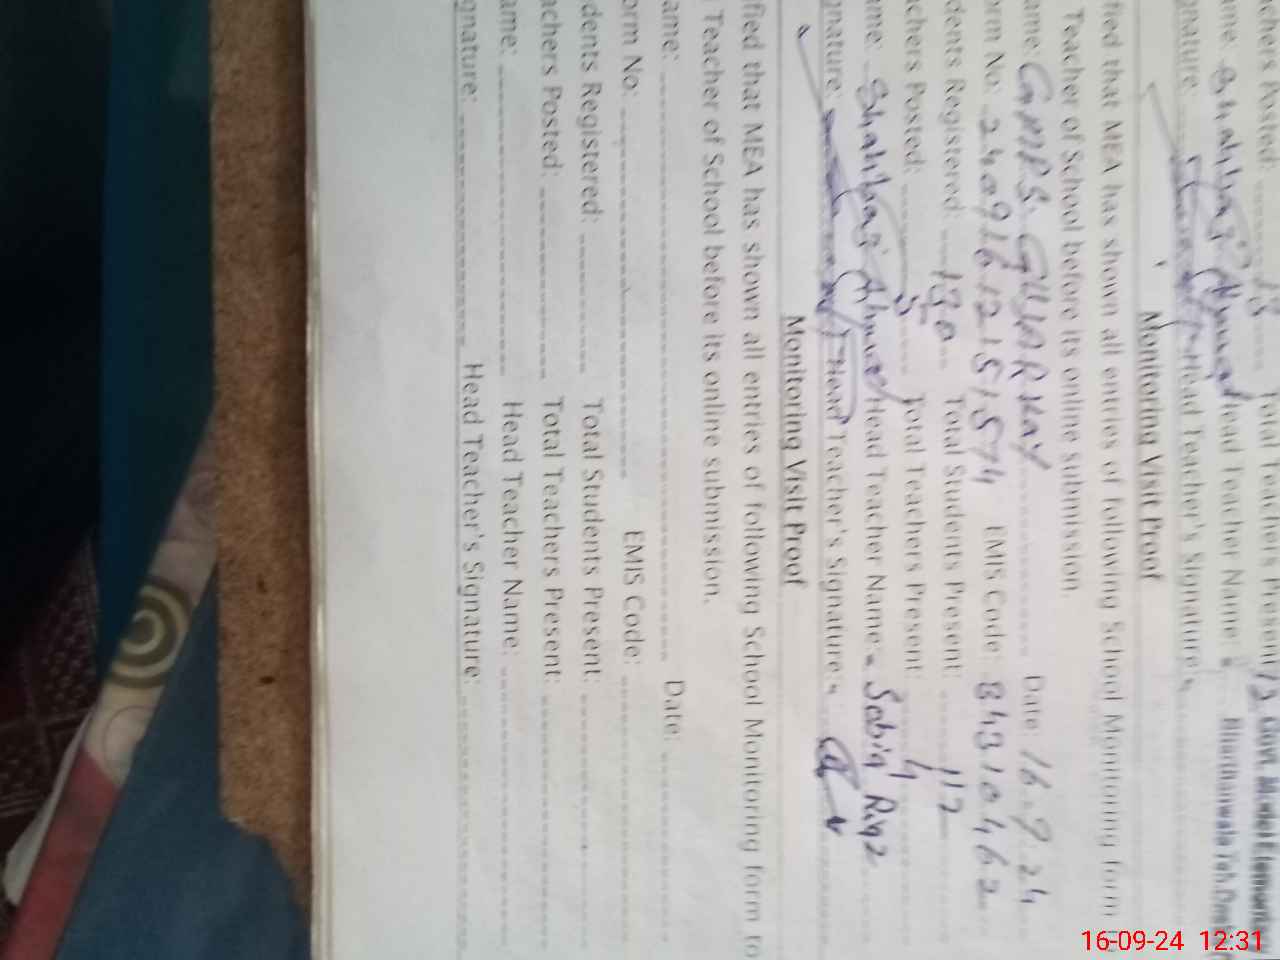 achers Posted: 13 Total Teachers Present 12 Govt. Model Elementary
ame: Shahbaz Ahmad Head Teacher Name:
gnature: Head Teacher's Signature
Monitoring Visit Proof
fied that MEA has shown all entries of following School Monitoring form to
Teacher of School before its online submission.
ame: GMPS. Date: 16-9-24
orm No: 24091612151574 EMIS Code: 84310462
dents Registered: 130 Total Students Present: 112
achers Posted: 5 Total Teachers Present: 4
ame: Shahbaz Ahmad Head Teacher Name: Sobia Riaz
gnature: Head Teacher's Signature
Monitoring Visit Proof
fied that MEA has shown all entries of following School Monitoring form to
Teacher of School before its online submission.
ame: Date:
orm No: EMIS Code:
dents Registered: Total Students Present:
achers Posted: Total Teachers Present:
ame: Head Teacher Name:
gnature: Head Teacher's Signature:
16-09-24 12:31